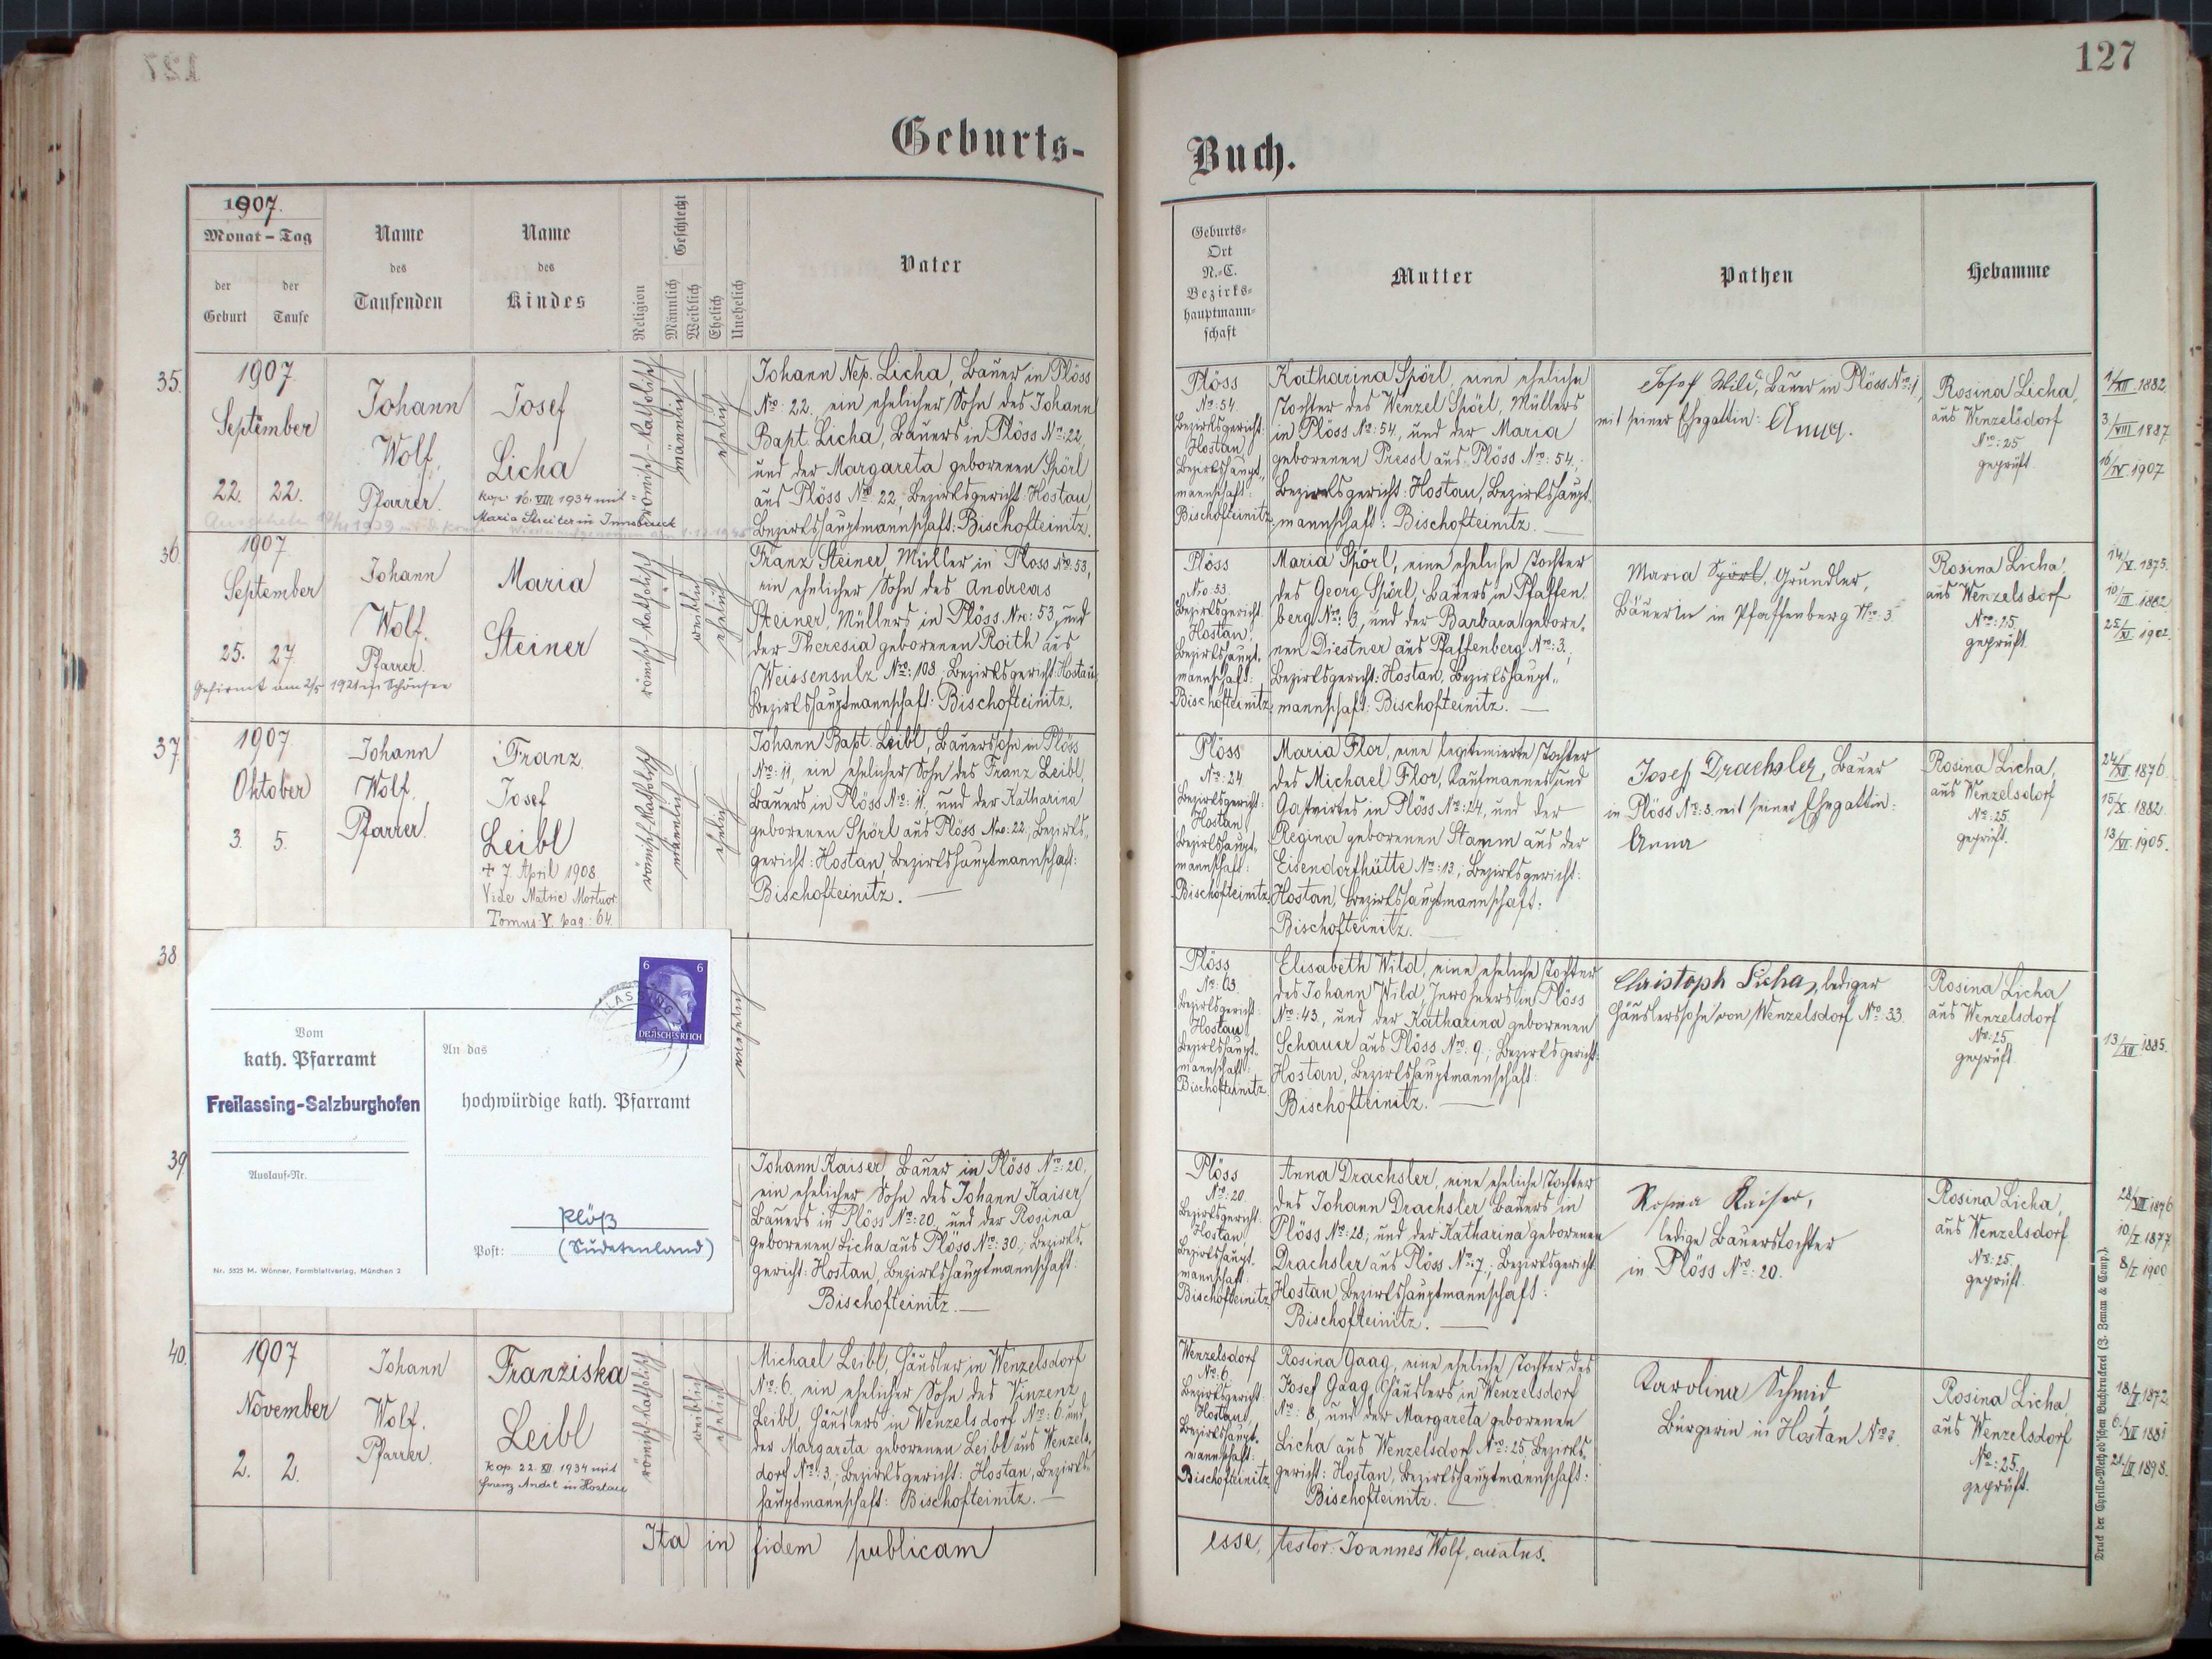 127
Geburts-
1907.
Monat – Tag
der Geburt
der Taufe
Name des Taufenden
Name des Kindes
Religion
Geschlecht
Männlich
Weiblich
Ehelich
Unehelich
Vater
35.
1907
September
22. 22.
Johann
Wolf,
Pfarrer.
Josef
Licha
kop. 16. VIII. 1934 mit
Maria Streiter in Innsbruck
römisch-katholisch
männlich
ehelich
Johann Nep. Licha, Bauer in Plöss
Nro: 22, ein ehelicher Sohn des Johann
Bapt. Licha, Bauers in Plöss Nro: 22,
und der Margareta geborenen Spörl
aus Plöss Nro: 22, Bezirksgericht: Hostau,
Bezirkshauptmannschaft: Bischofteinitz.
36
1907
September
25. 27
Gefirmt am 2/5 1921 in Schönsee
Johann
Wolf.
Pfarrer.
Maria
Steiner
römisch-katholisch
weiblich
ehelich
Franz Steiner, Müller in Plöss Nro: 53,
ein ehelicher Sohn des Andreas
Steiner, Müllers in Plöss Nro: 53, und
der Theresia geborenen Roith aus
Weissensulz Nro: 108, Bezirksgericht: Hostau,
Bezirkshauptmannschaft: Bischofteinitz.
37
1907
Oktober
3. 5.
Johann
Wolf.
Pfarrer.
Franz
Josef
Leibl
+ 7. April 1908.
Vide Matric Mortuor.
Tomus V. pag.: 64.
römisch-katholisch
männlich
ehelich
Johann Bapt. Leibl, Bauerssohn in Plöss
Nro: 11, ein ehelicher Sohn des Franz Leibl,
Bauers in Plöss Nro: 11. und der Katharina
geborenen Spörl aus Plöss Nro: 22, Bezirks-
gericht: Hostau, Bezirkshauptmannschaft:
Bischofteinitz.
38
unehelich
6 6
DEUTSCHES REICH
Vom
kath. Pfarramt
Freilassing-Salzburghofen
Auslauf-Nr.
Nr. 5525 M. Wönner, Formblattverlag, München 2
An das
hochwürdige kath. Pfarramt
Plöß
Post: (Sudetenland)
39
Johann Kaiser, Bauer in Plöss Nro: 20,
ein ehelicher Sohn des Johann Kaiser,
Bauers in Plöss Nro: 20, und der Rosina
geborenen Licha aus Plöss Nro: 30.; Bezirks-
gericht: Hostau, Bezirkshauptmannschaft:
Bischofteinitz.
40.
1907
November
2. 2.
Johann
Wolf.
Pfarrer.
Franziska
Leibl
kop. 22. XI. 1934 mit
Franz Andit in Hostau
römisch-katholisch
weiblich
ehelich
Michael Leibl, Häusler in Wenzelsdorf
Nro: 6. ein ehelicher Sohn des Vinzenz
Leibl, Häuslers in Wenzelsdorf Nro: 6 und
der Margareta geborenen Leibl aus Wenzels-
dorf Nro: 3.; Bezirksgericht: Hostau, Bezirks-
hauptmannschaft: Bischofteinitz.
Ita in fidem publicam
127
Buch.
Geburts-
Ort
N.-C.
Bezirks-
hauptmann-
schaft
Mutter
Pathen
Hebamme
Plöss
Nro: 54
Bezirksgericht:
Hostau,
Bezirkshaupt-
mannschaft:
Bischofteinitz
Katharina Spörl, eine eheliche
Tochter des Wenzel Spörl, Müllers
in Plöss Nro: 54, und der Maria
geborenen Pressl aus Plöss Nro: 54.;
Bezirksgericht: Hostau, Bezirkshaupt-
mannschaft: Bischofteinitz.
Josef Wild, Bauer in Plöss Nro: 1,
mit seiner Ehegattin: Anna.
Rosina Licha,
aus Wenzelsdorf
Nro: 25
geprüft.
1/XII. 1882.
3/VIII 1887
16/IV. 1907
Plöss
Nro. 53.
Bezirksgericht
Hostau,
Bezirkshaupt-
mannschaft:
Bischofteinitz
Maria Spörl, eine eheliche Tochter
des Georg Spörl, Bauers in Pfaffen-
berg Nro: 3, und der Barbara gebore-
nen Diestner aus Pfaffenberg Nro: 3.;
Bezirksgericht: Hostau, Bezirkshaupt-
mannschaft: Bischofteinitz.
Maria Spörl, Gründler,
Bäuerin in Pfaffenberg Nro: 3
Rosina Licha,
aus Wenzelsdorf
Nro: 25
geprüft
14/V. 1875.
10/III 1882
25/XI. 1902.
Plöss
Nro: 24
Bezirksgericht:
Hostau,
Bezirkshaupt-
mannschaft:
Bischofteinitz
Maria Flor, eine legitimierte Tochter
des Michael Flor, Kaufmannes und
Gastwirtes in Plöss Nro: 24, und der
Regina geborenen Stamm aus der
Eisendorfhütte Nro: 13; Bezirksgericht:
Hostau, Bezirkshauptmannschaft:
Bischofteinitz.
Josef Drachsler, Bauer
in Plöss Nro: 3. mit seiner Ehegattin:
Anna
Rosina Licha,
aus Wenzelsdorf
Nro: 25.
geprüft.
24/XII. 1876.
15/X. 1882.
13/VI. 1905.
Plöss
Nro: 63.
Bezirksgericht:
Hostau,
Bezirkshaupt-
mannschaft:
Bischofteinitz
Elisabeth Wild, eine eheliche Tochter
des Johann Wild, Inwohners in Plöss
Nro: 43, und der Katharina geborenen
Schauer aus Plöss Nro: 9.; Bezirksgericht:
Hostau, Bezirkshauptmannschaft:
Bischofteinitz.
Christoph Licha, lediger
Häuslerssohn von Wenzelsdorf Nro: 33.
Rosina Licha
aus Wenzelsdorf
Nro: 25
geprüft
13/XII. 1885.
Plöss
Nro: 20.
Bezirksgericht
Hostau,
Bezirkshaupt-
mannschaft:
Bischofteinitz
Anna Drachsler, eine eheliche Tochter
des Johann Drachsler, Bauers in
Plöss Nro: 28, und der Katharina geborenen
Drachsler aus Plöss Nro: 7.; Bezirksgericht:
Hostau, Bezirkshauptmannschaft:
Bischofteinitz.
Rosina Kaiser,
ledige Bauerstochter
in Plöss Nro: 20.
Rosina Licha,
aus Wenzelsdorf
Nro: 25.
geprüft.
10/I. 1877
8/I. 1900
Wenzelsdorf
Nro: 6
Bezirksgericht:
Hostau,
Bezirkshaupt-
mannschaft:
Bischofteinitz
Rosina Gaag, eine eheliche Tochter des
Josef Gaag, Häuslers in Wenzelsdorf
Nro: 8, und der Margareta geborenen
Licha aus Wenzelsdorf Nro: 25, Bezirks-
gericht: Hostau, Bezirkshauptmannschaft:
Bischofteinitz.
Karolina Schmid,
Bürgerin in Hostau Nro:
Rosina Licha,
aus Wenzelsdorf
Nro: 25.
geprüft.
18/I. 1872
6/VI 1881
21/II 1898.
esse, testor: Joannes Wolf, curatus.
Druck der Cyrillo-Method'schen Buchdruckerei (J. Zeman & Comp.)